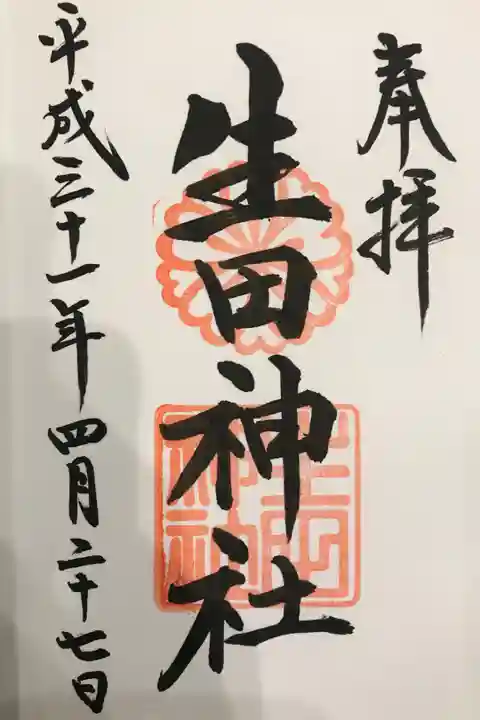 奉拝
生田神社
生田神社
平成三十一年四月二十七日